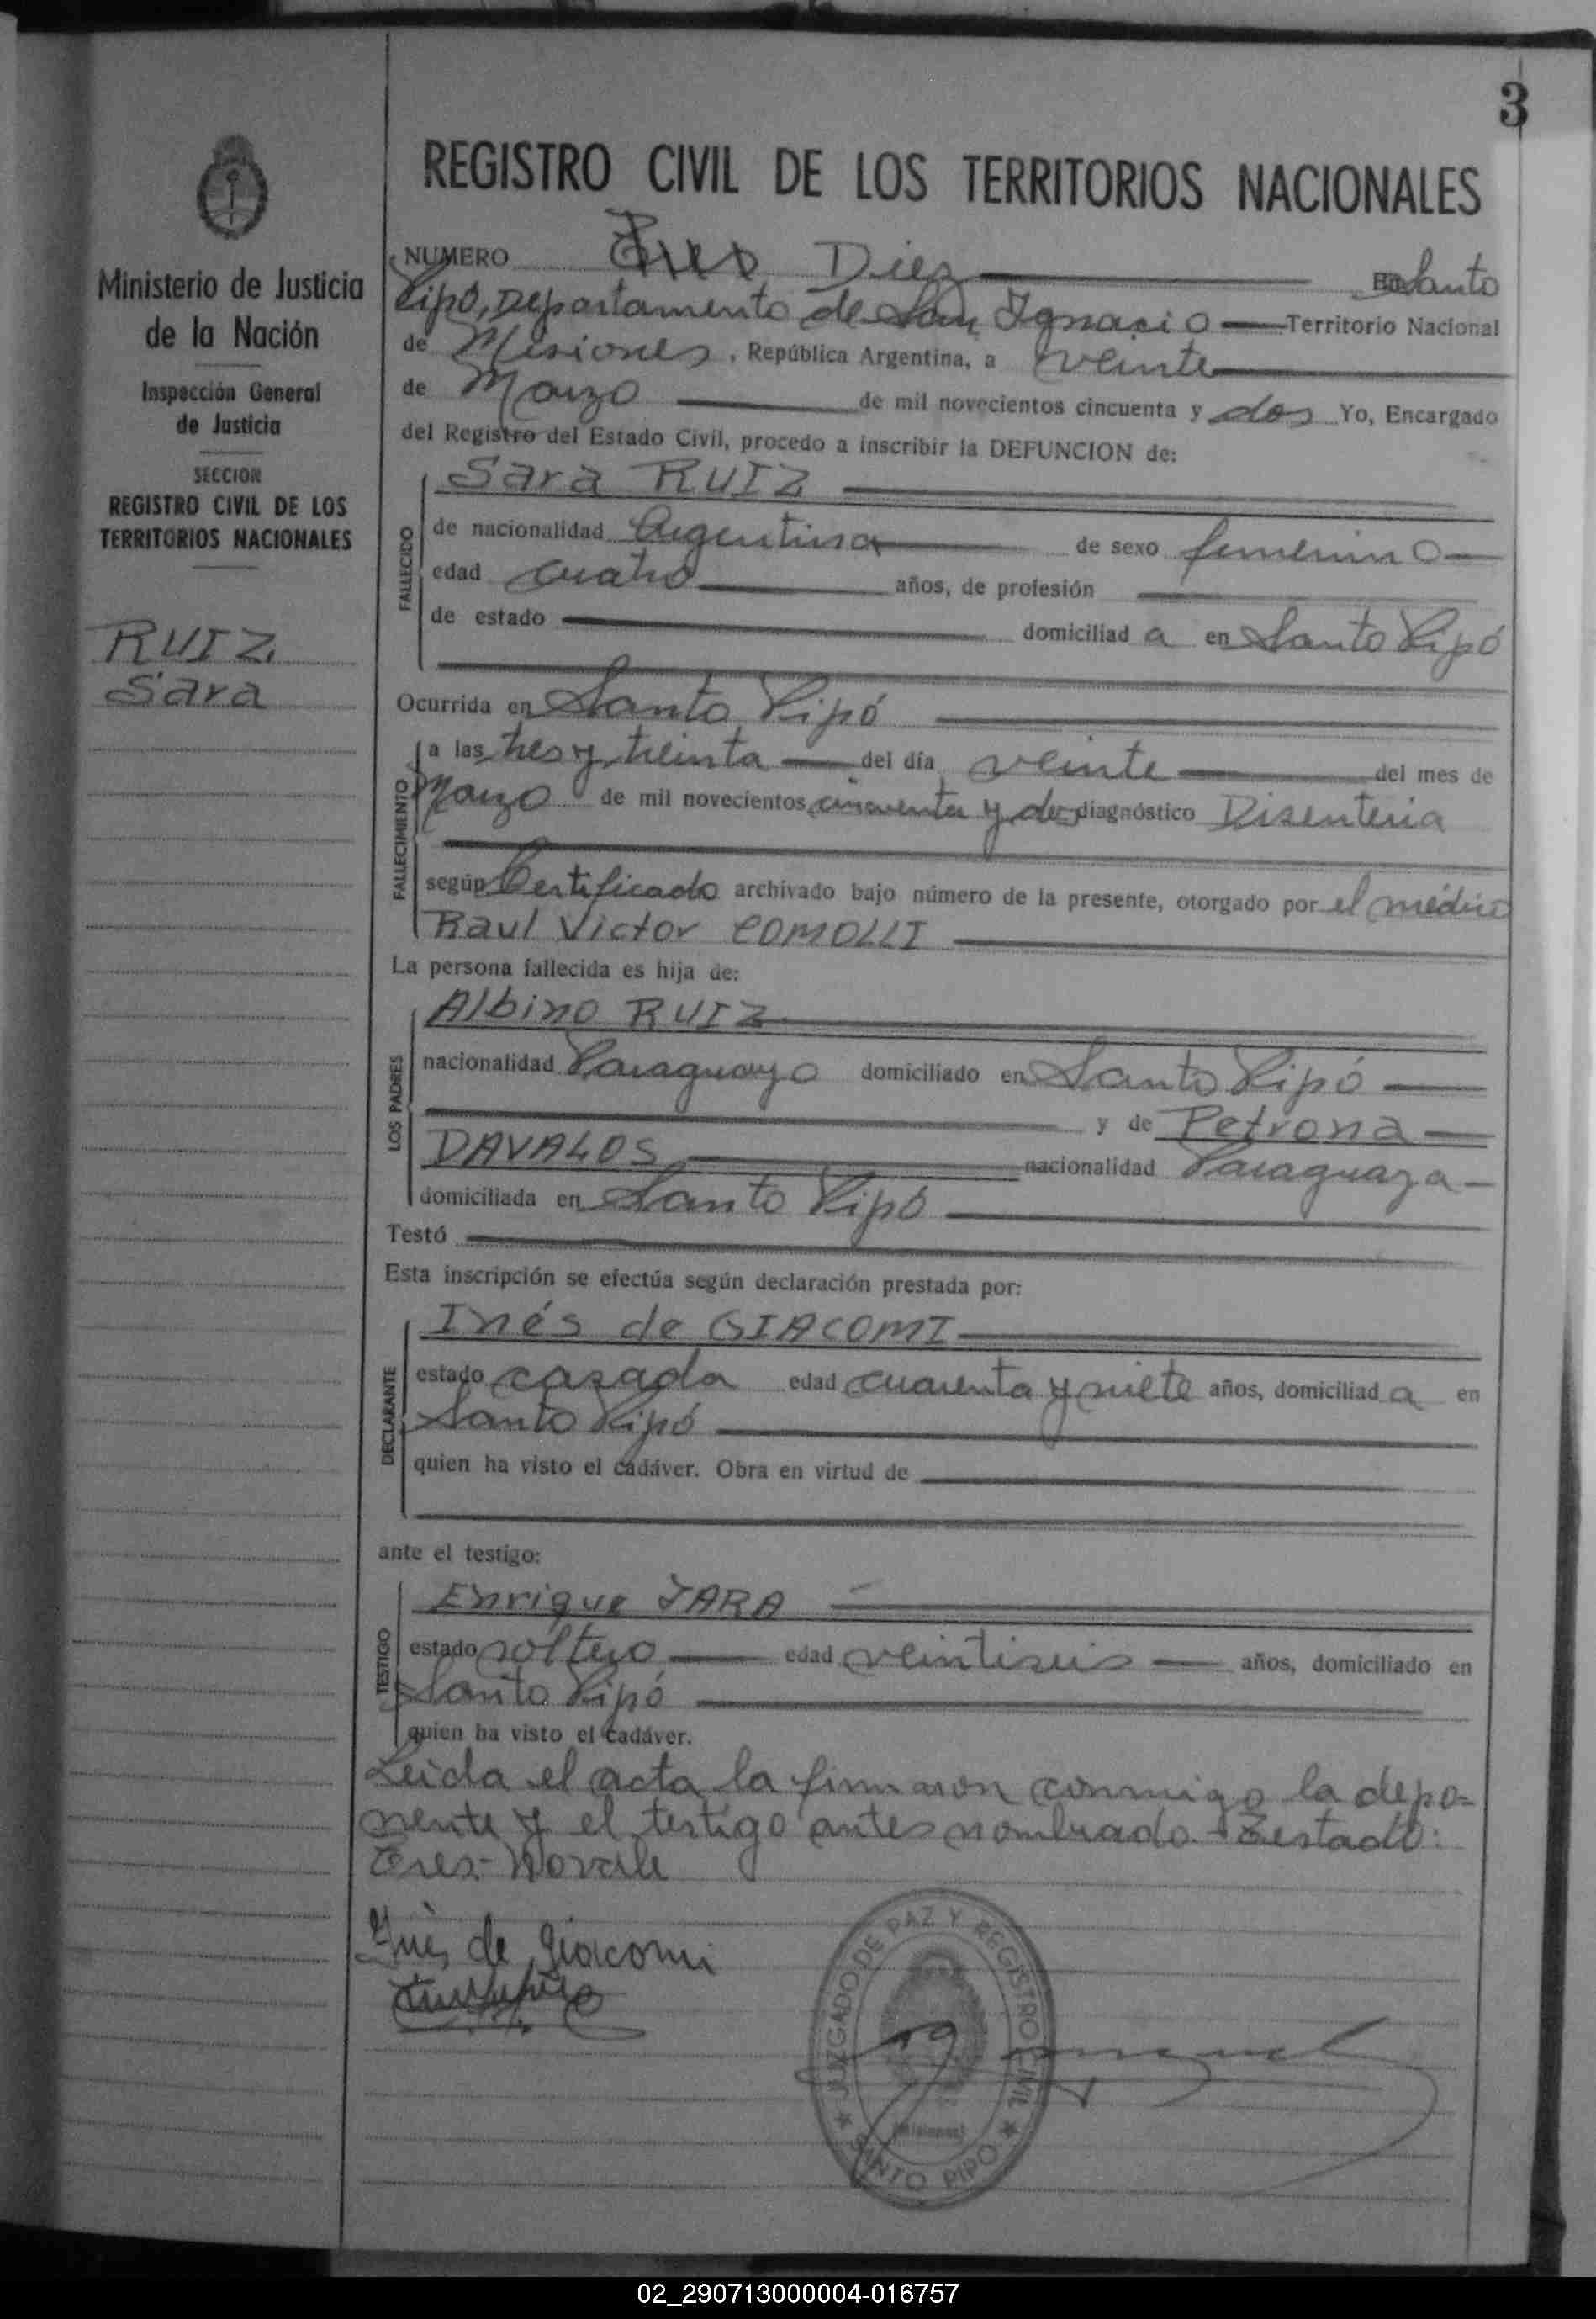 3
REGISTRO CIVIL DE LOS TERRITORIOS NACIONALES
Ministerio de Justicia
de la Nación
Inspección General
de Justicia
SECCION
REGISTRO CIVIL DE LOS
TERRITORIOS NACIONALES
RUIZ
Sara
NUMERO Tres Diez En Santo
Pipó, Departamento de San Ignacio Territorio Nacional
de Misiones, República Argentina, a veinte
de Marzo de mil novecientos cincuenta y dos Yo, Encargado
del Registro del Estado Civil, procedo a inscribir la DEFUNCION de:
FALLECIDO
Sara RUIZ
de nacionalidad Argentina de sexo femenino
edad cuatro años, de profesión
de estado domiciliad a en Santo Pipó
Ocurrida en Santo Pipó
FALLECIMIENTO
a las tres y treinta del día veinte del mes de
Marzo de mil novecientos cincuenta y dos diagnóstico Disenteria
según Certificado archivado bajo número de la presente, otorgado por el médico
Raul Victor COMOLLI
La persona fallecida es hija de:
LOS PADRES
Albino RUIZ
nacionalidad Paraguayo domiciliado en Santo Pipó
y de Petrona
DAVALOS nacionalidad Paraguaya
domiciliada en Santo Pipó
Testó
Esta inscripción se efectúa según declaración prestada por:
DECLARANTE
Inés de GIACOMI
estado casada edad cuarenta y siete años, domiciliad a en
Santo Pipó
quien ha visto el cadáver. Obra en virtud de
ante el testigo:
TESTIGO
Enrique JARA
estado soltero edad veintiseis años, domiciliado en
Santo Pipó
quien ha visto el cadáver.
Leida el acta la firmaron conmigo la depo=
nente y el testigo antes nombrado. Testado:
Tres- No vale
Inés de Giacomi
JUZGADO DE PAZ Y REGISTRO CIVIL
(Misiones)
SANTO PIPO
02_290713000004-016757